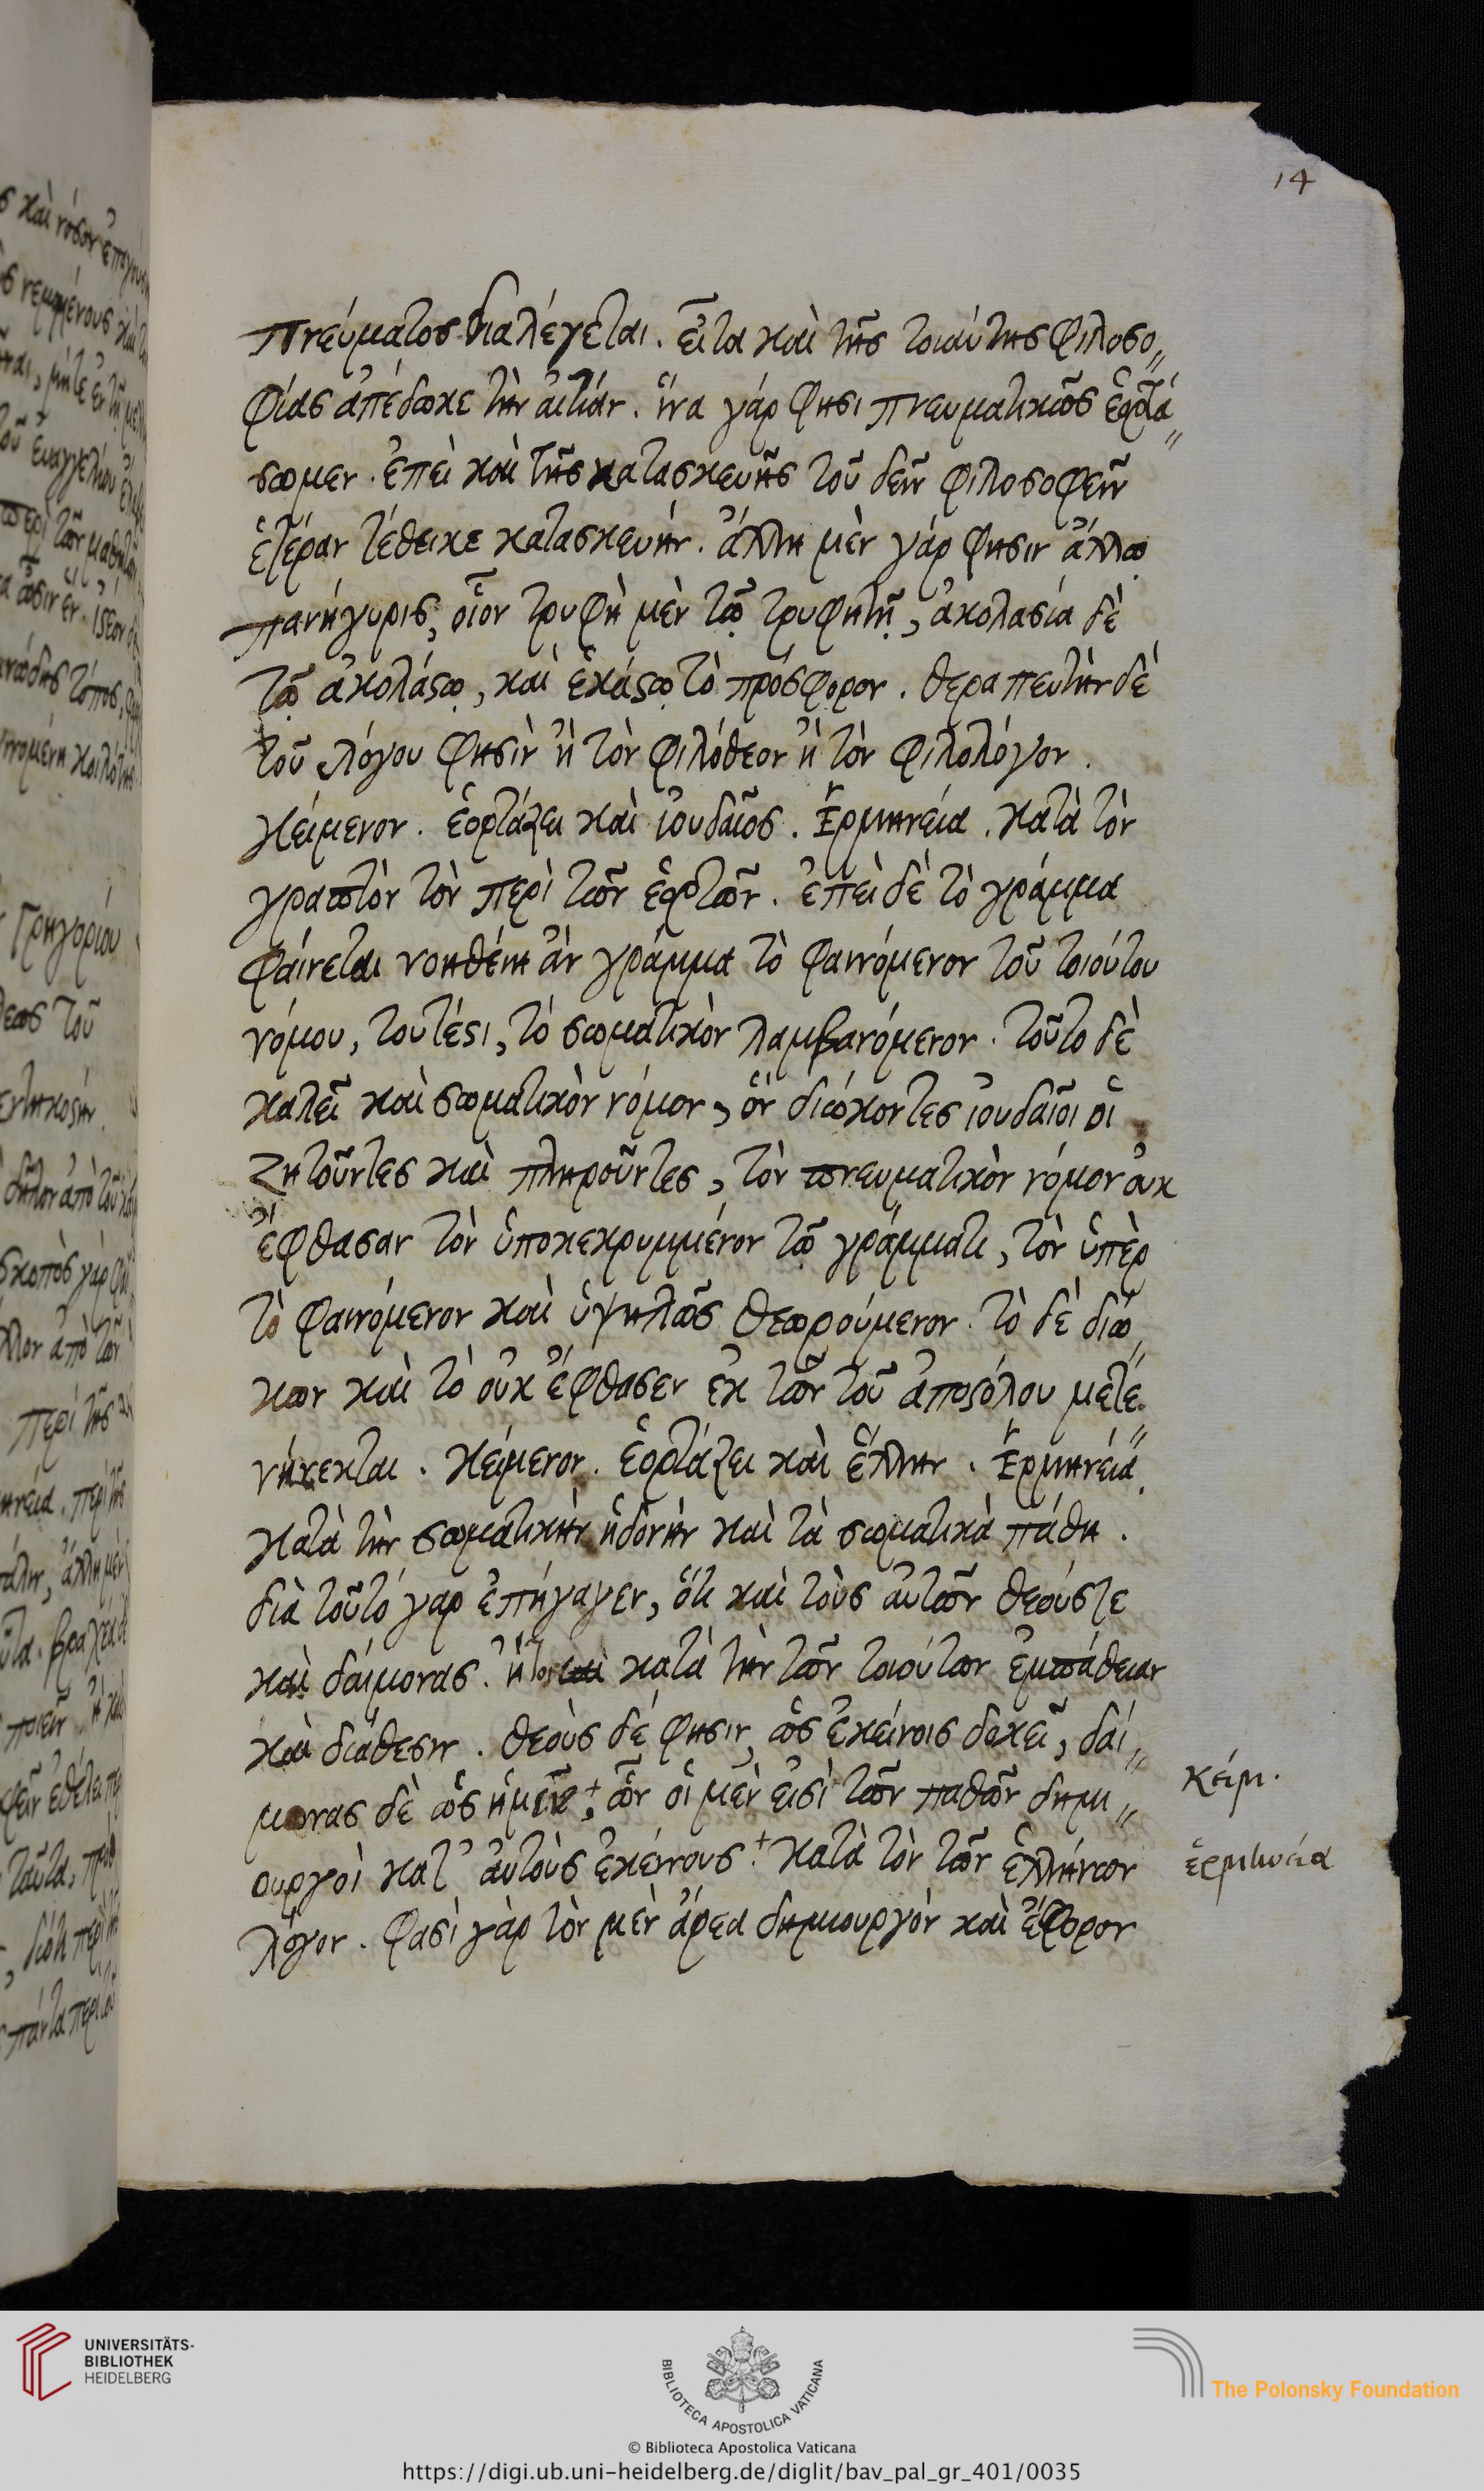 14
πνεύματος διαλέγεται. εἶτα καὶ τῆς τοιαύτης φιλοσο〃
φίας ἀπέδωκε τὴν αἰτίαν. ἵνα γάρ φησι πνευματικῶς ἑορτά〃
σωμεν. ἐπεὶ καὶ τῆς κατασκευῆς τοῦ δεῖν φιλοσοφεῖν
ἑτέραν τέθεικε κατασκευήν. ἄλλη μὲν γάρ φησιν ἄλλῳ
πανήγυρις, οἷον τρυφὴ μὲν τῷ τρυφητῇ, ἀκολασία δὲ
τῷ ἀκολάστῳ, καὶ ἑκάστῳ τὸ πρόσφορον. θεραπευτὴν δὲ
τοῦ λόγου φησὶν ἢ τὸν φιλόθεον ἢ τὸν φιλολόγον.
κείμενον. ἑορτάζει καὶ ἰουδαῖος. Ἑρμηνεία. κατὰ τὸν
γραπτὸν τὸν περὶ τῶν ἑορτῶν. ἐπεὶ δὲ τὸ γράμμα
φαίνεται νοηθείη ἂν γράμμα τὸ φαινόμενον τοῦ τοιούτου
νόμου, τουτέστι, τό σωματικὸν λαμβανόμενον. τοῦτο δὲ
καλεῖ καὶ σωματικὸν νόμον, ὃν διώκοντες ἰουδαῖοι οἱ
ζητοῦντες καὶ πληροῦντες, τὸν πνευματικὸν νόμον οὐκ
ἔφθασαν τὸν ὑποκεκρυμμένον τῷ γράμματι, τὸν ὑπὲρ
τὸ φαινόμενον καὶ ὑψηλῶς θεωρούμενον. τὸ δὲ διώ〃
κων καὶ τὸ οὐκ ἔφθασεν ἐκ τῶν τοῦ ἀποστόλου μετε〃
νήνεκται. κείμενον. ἑορτάζει καὶ ἕλλην. Ἑρμηνεία.
κατὰ τὴν σωματικὴν ἡδονὴν καὶ τὰ σωματικὰ πάθη.
διὰ τοῦτό γαρ ἐπήγαγεν, ὅτι καὶ τοὺς αὐτῶν θεούς τε
καὶ δαίμονας. ἤτοι κατὰ τὴν τῶν τοιούτων ἐμπάθειαν
καὶ διάθεσιν. θεοὺς δέ φησιν, ὡς ἐκείνοις δοκεῖ, δαί〃
μονας δὲ ὡς ἡμεῖς+, ὧν οἱ μὲν εἰσὶ τῶν παθῶν δημι〃
ουργοὶ κατ᾽ αὐτοὺς ἐκείνους.+ κατὰ τὸν τῶν ἑλλήνων
λόγον. φασὶ γὰρ τὸν μὲν ἄρεα δημιουργόν καὶ ἔφορον
κείμ.
ἑρμηνεία
UNIVERSITÄTS-
BIBLIOTHEK
HEIDELBERG
BIBLIOTECA APOSTOLICA VATICANA
© Biblioteca Apostolica Vaticana
The Polonsky Foundation
https://digi.ub.uni-heidelberg.de/diglit/bav_pal_gr_401/0035